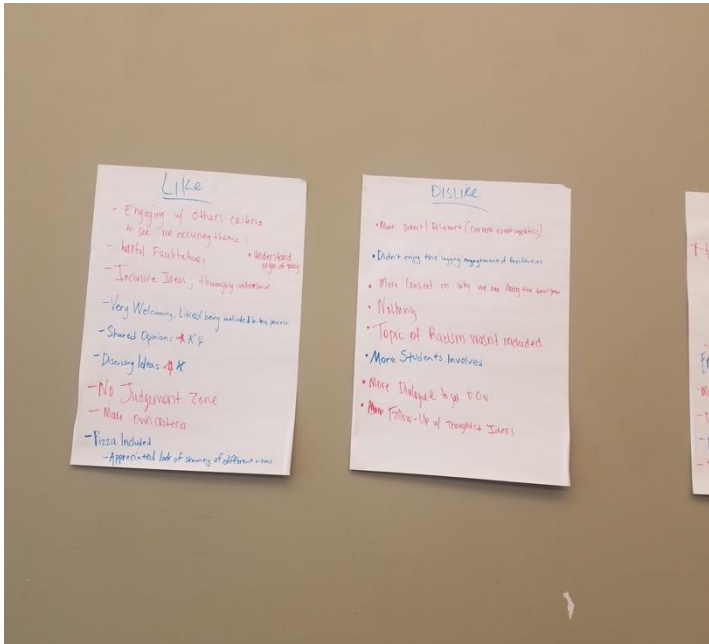 LIKE
- Engaging w/ others criteria
to see reoccuring themes
- helpful Facilitators
• Understand
origin of policy
- Inclusive Ideas, thoroughly understand
- Very Welcoming, Liked being included in the process
- Shared Opinions
- Discussing Ideas
- No Judgement Zone
- Make own criteria
- Pizza Included
- Appreciated lack of shaming of different views
DISLIKE
• More Direct/Relevant (current events/politics)
• Didn't enjoy the lagging engagement of facilitators
• More Context on why we are doing the
• Nothing
• Topic of Racism wasn't included
• More Students Involved
• More Dialogue to get P.O.V
• Follow-Up w/ Thoughts & Ideas